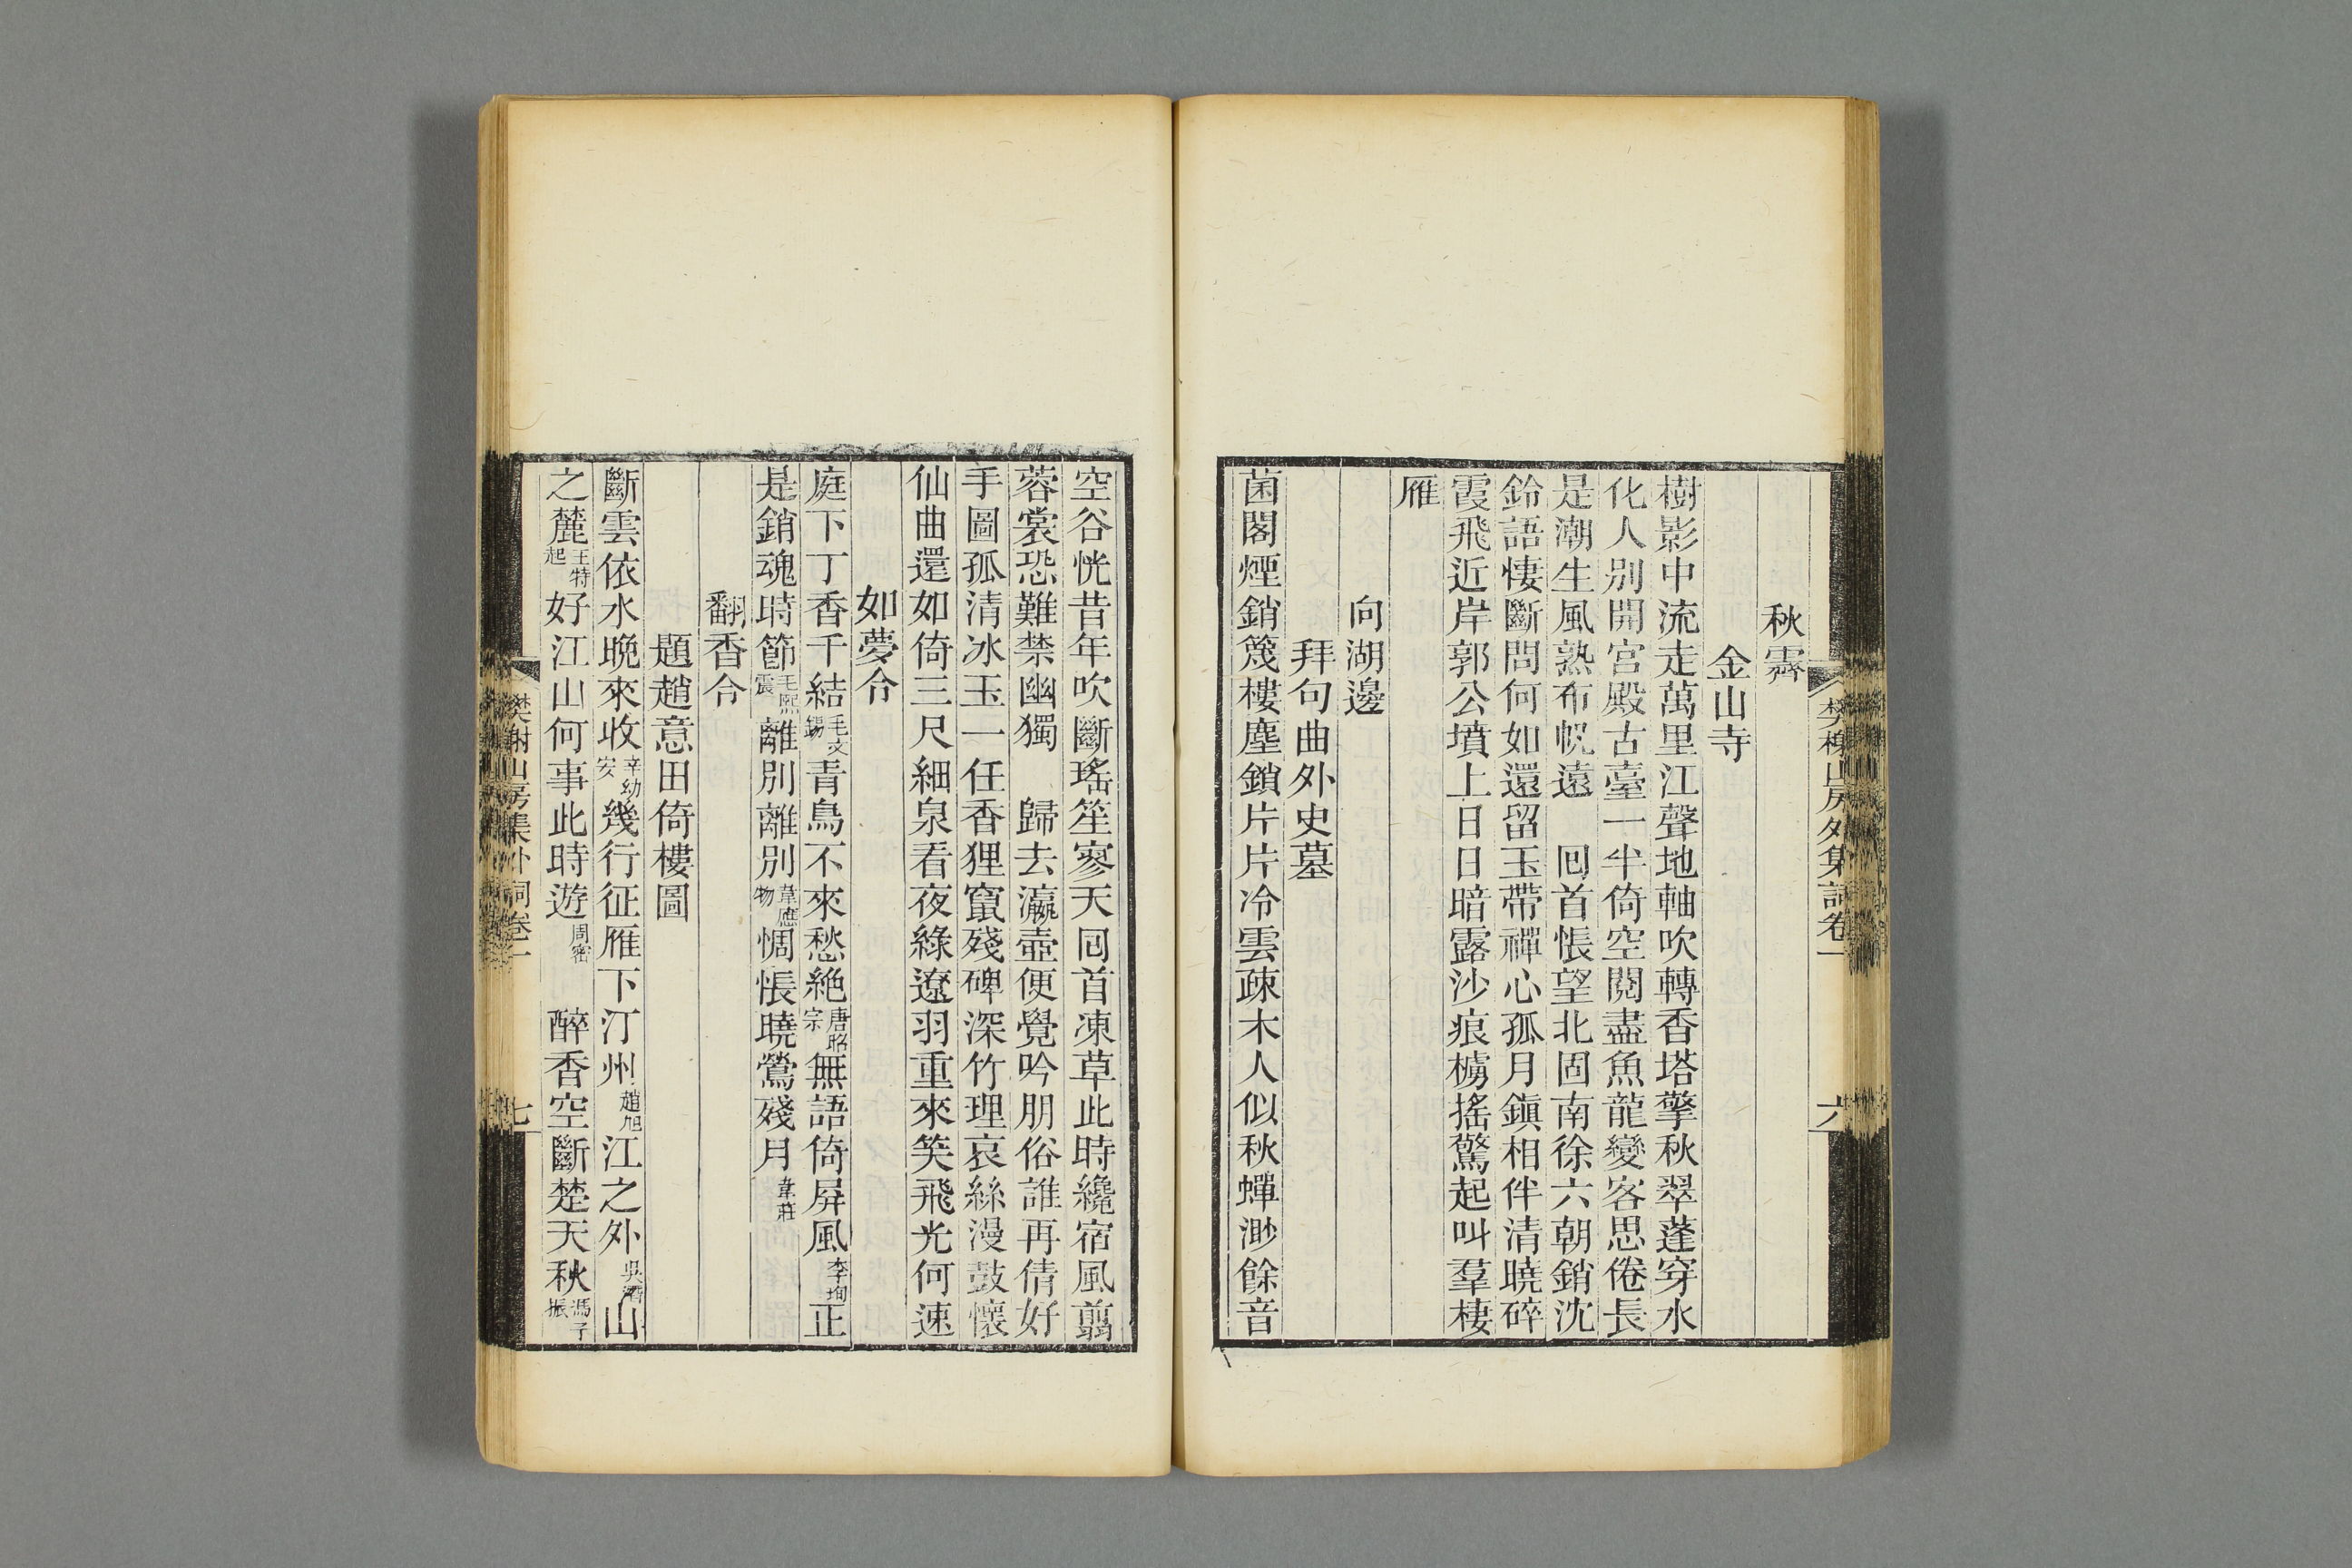 秋霽
金山寺
樹影中流走萬里江聲地軸吹轉香塔擎秋翠蓬穿水
化人別開宮殿古臺一半倚空閱盡魚龍變客思倦長
是潮生風熟布帆遠　囘首悵望北固南徐六朝銷沈
鈴語悽斷問何如還留玉帶禪心孤月鎭相伴清曉碎
霞飛近岸郭公墳上日日暗露沙痕櫓搖驚起叫羣棲
雁
向湖邊
拜句曲外史墓
菌閣煙銷篾樓塵鎖片片冷雲疎木人似秋蟬渺餘音
樊榭山房外集詞卷一
六
空谷恍昔年吹斷瑤笙寥天囘首凍草此時纔宿風翦
蓉裳恐難禁幽獨　歸去瀛壺便覺吟朋俗誰再倩好
手圖孤清冰玉一任香狸竄殘碑深竹理哀絲漫鼓懷
仙曲還如倚三尺細泉看夜綠遼羽重來笑飛光何速
如夢令
庭下丁香千結毛文錫青鳥不來愁絶唐昭宗無語倚屏風李珣正
是銷魂時節毛熙震離別離別韋應物惆悵曉鶯殘月韋莊
翻香令
題趙意田倚樓圖
斷雲依水晚來收辛幼安幾行征雁下汀州趙旭江之外吳潛山
之麓王特起好江山何事此時遊周密　醉香空斷楚天秋馮子振
樊榭山房集外詞卷一
七